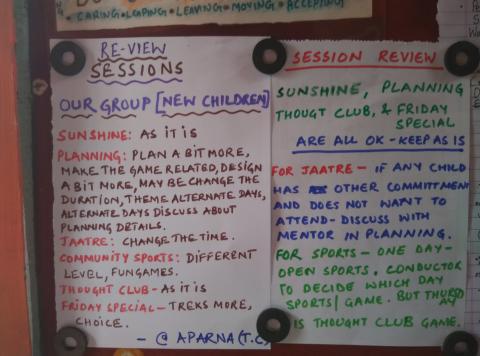 CARING • LOAPING • LEAVING • MOVING • ACCEPTING
RE-VIEW
SESSIONS
OUR GROUP [NEW CHILDREN]
SUNSHINE: AS IT IS
PLANNING: PLAN A BIT MORE,
MAKE THE GAME RELATED, DESIGN
A BIT MORE, MAY BE CHANGE THE
DURATION, THEME ALTERNATE DAYS,
ALTERNATE DAYS DISCUSS ABOUT
PLANNING DETAILS.
JAATRE: CHANGE THE TIME.
COMMUNITY SPORTS: DIFFERENT
LEVEL, FUNGAMES.
THOUGHT CLUB - AS IT IS
FRIDAY SPECIAL - TREKS MORE,
CHOICE.
- @ APARNA (T.C)
SESSION REVIEW
SUNSHINE, PLANNING
THOUGT CLUB, & FRIDAY
SPECIAL
ARE ALL OK - KEEP AS IS
FOR JAATRE - IF ANY CHILD
HAS OTHER COMMITTMENT
AND DOES NOT WANT TO
ATTEND - DISCUSS WITH
MENTOR IN PLANNING.
FOR SPORTS - ONE DAY -
OPEN SPORTS, CONDUCTOR
TO DECIDE WHICH DAY
SPORTS/ GAME. BUT THURSDAY
IS THOUGHT CLUB GAME.